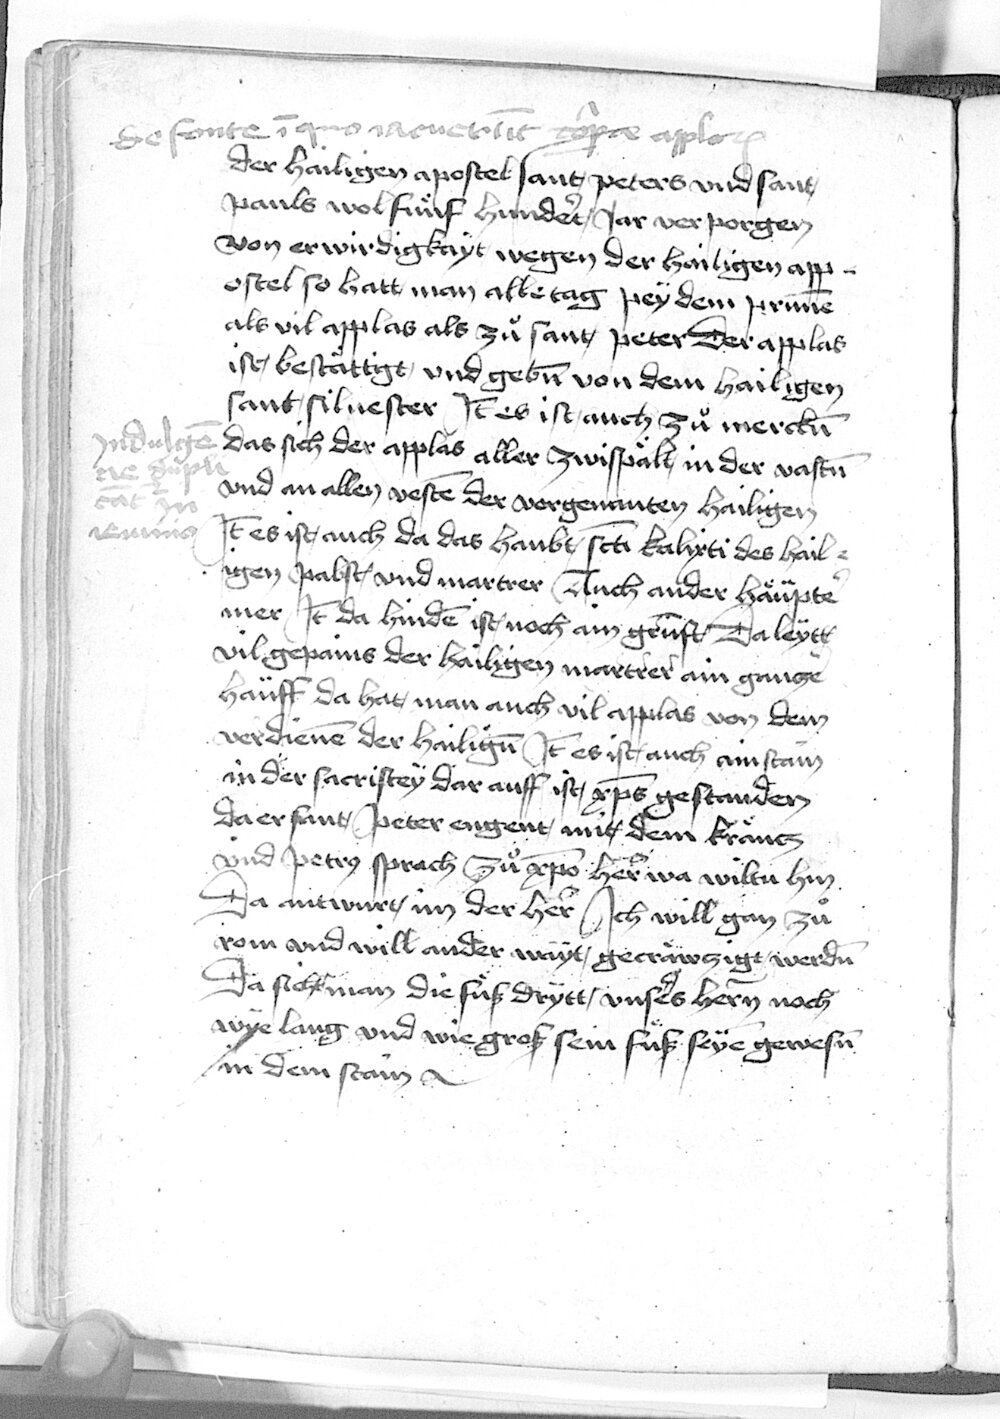 De fonte ī quo iacuerūt corpora apploꝝ
der hailigen apostel sant peters vnd sant
pauls wol fünf hundert Jar verporgen
von erwirdigkäyt wegen der hailigen app-
ostel so hatt man alle tag pey dem prunē
als vil applas als zů sant peter Der applas
ist bestättigt vnd gebn̄ von dem hailigen
sant siluester It̄ es ist auch zů merckn̄
das sich der applas aller zwispält in der vastn̄
vnd an allen vestē der vorgenanten hailigen
Indulgē
cie dupli
cāt̄ in
ieiunio
It̄ es ist auch da das haubt sct̄i kalixti des hail-
igen pabst vnd martrer Auch ander häüpter
mer It̄ da hindē ist noch ain grufft Da leytt
vil gepains der hailigen martrer ain gancze
häuff da hat man auch vil applas von dem
verdienē der hailign̄ It̄ es ist auch ain stain
in der sacristey dar auff ist xp̄s gestanden
da er sant Peter engent mit dem kräucz
vnd Petrꝫ sprach zů xp̄o her wa wiltu hin
Da antwurt im der her Ich will gan zů
rom vnd will ander wäyt gecräwczigt werdn̄
Da sicht man die fůß drytt vnsers hern̄ noch
wye lang vnd wie groß sein fůß seyē gewesn̄
in dem stain